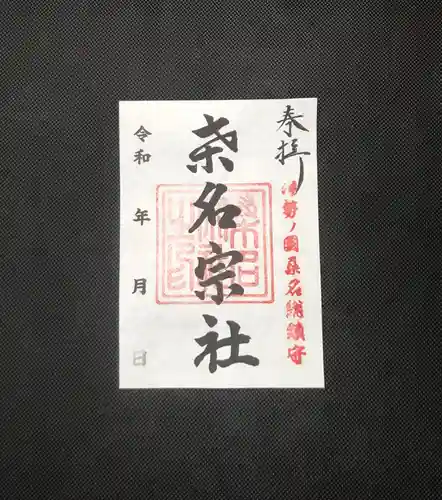 奉拝
伊勢ノ國桑名総鎮守
桒名宗社
令和 年 月 日